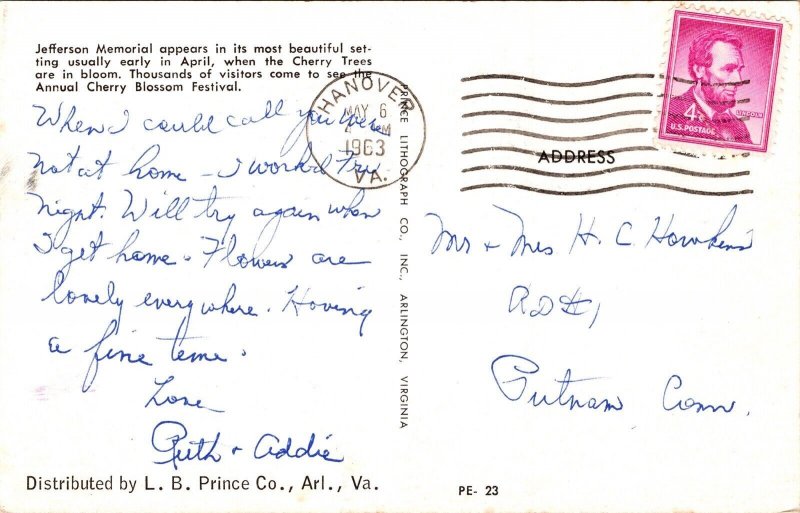 Jefferson Memorial appears in its most beautiful set-
ting usually early in April, when the Cherry Trees
are in bloom. Thousands of visitors come to see the
Annual Cherry Blossom Festival.
When I could call you were
not at home - I worked Fry
night. Will try again when
I get home. Flowers are
lovely everywhere. Having
a fine time.
Love
Ruth + Addie
Distributed by L. B. Prince Co., Arl., Va.
PRINCE LITHOGRAPH CO., INC., ARLINGTON, VIRGINIA
HANOVER
MAY 6
PM
1963
VA.
4¢
LINCOLN
U.S. POSTAGE
ADDRESS
Mr + Mrs H. C. Hawkins
RD #1
Putnam Conn.
PE- 23